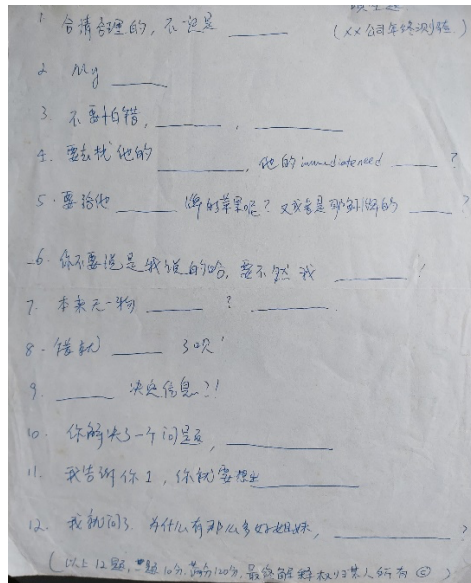 1. 合情合理的,不说是 ______ (XX公司年终测验)
2. My ______
3. 不要怕错, ______, ______
4. 要去找他的 ______, 他的immediate need ______?
5. 要给他 ______ 牌的苹果呢? 又或者是那 牌的 ______?
6. 你不要说是我说的哈, 要不然我 ______!
7. 本来无一物 ______? ______.
8. 借 ______ 3 !
9. ______ 决定信息?!
10. 你解决了一个问题, ______
11. 我告诉你1, 你就要想出 ______
12. 我就问了, 为什么有那么多好姐妹, ______?
(以上12题, 一题10分, 满分120分, 最终解释权归某人所有 ☺)